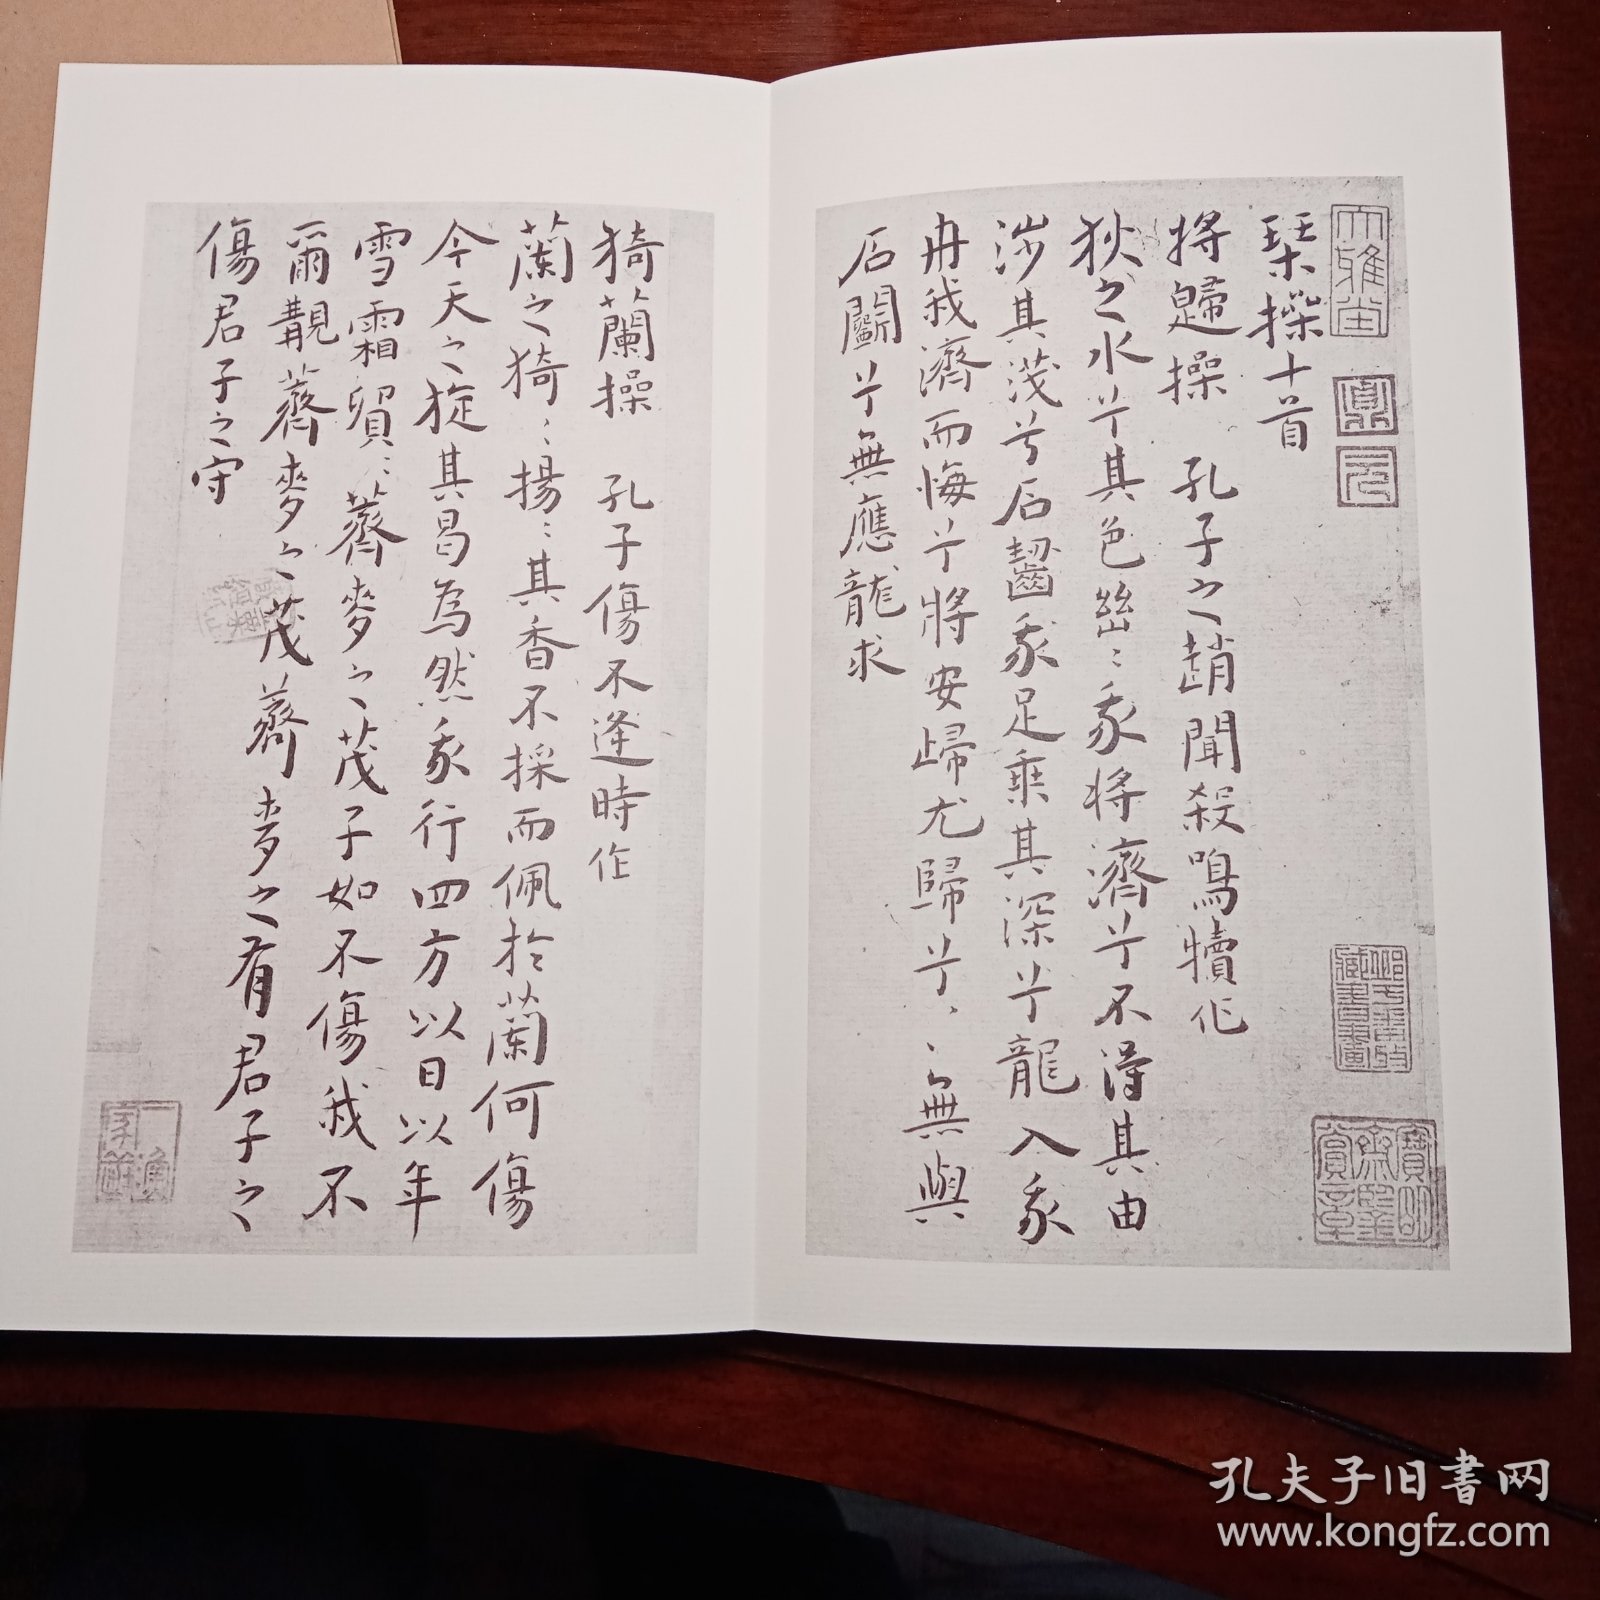 大雅堂
琹操十首
将歸操 孔子之趙聞殺鳴犢作
狄之水兮其色幽〻我将濟兮不得其由
涉其淺兮石齧我足乗其深兮龍入我
舟我濟而悔兮將安歸尤歸兮〻無與
石鬭兮無應龍求
猗蘭操 孔子傷不逢時作
蘭之猗〻揚〻其香不採而佩於蘭何傷
今天之旋其曷為然我行四方以日以年
雪霜貿〻薺麥之茂子如不傷我不
爾覯薺麥之茂薺麥之有君子之
傷君子之守
孔夫子旧书网
www.kongfz.com